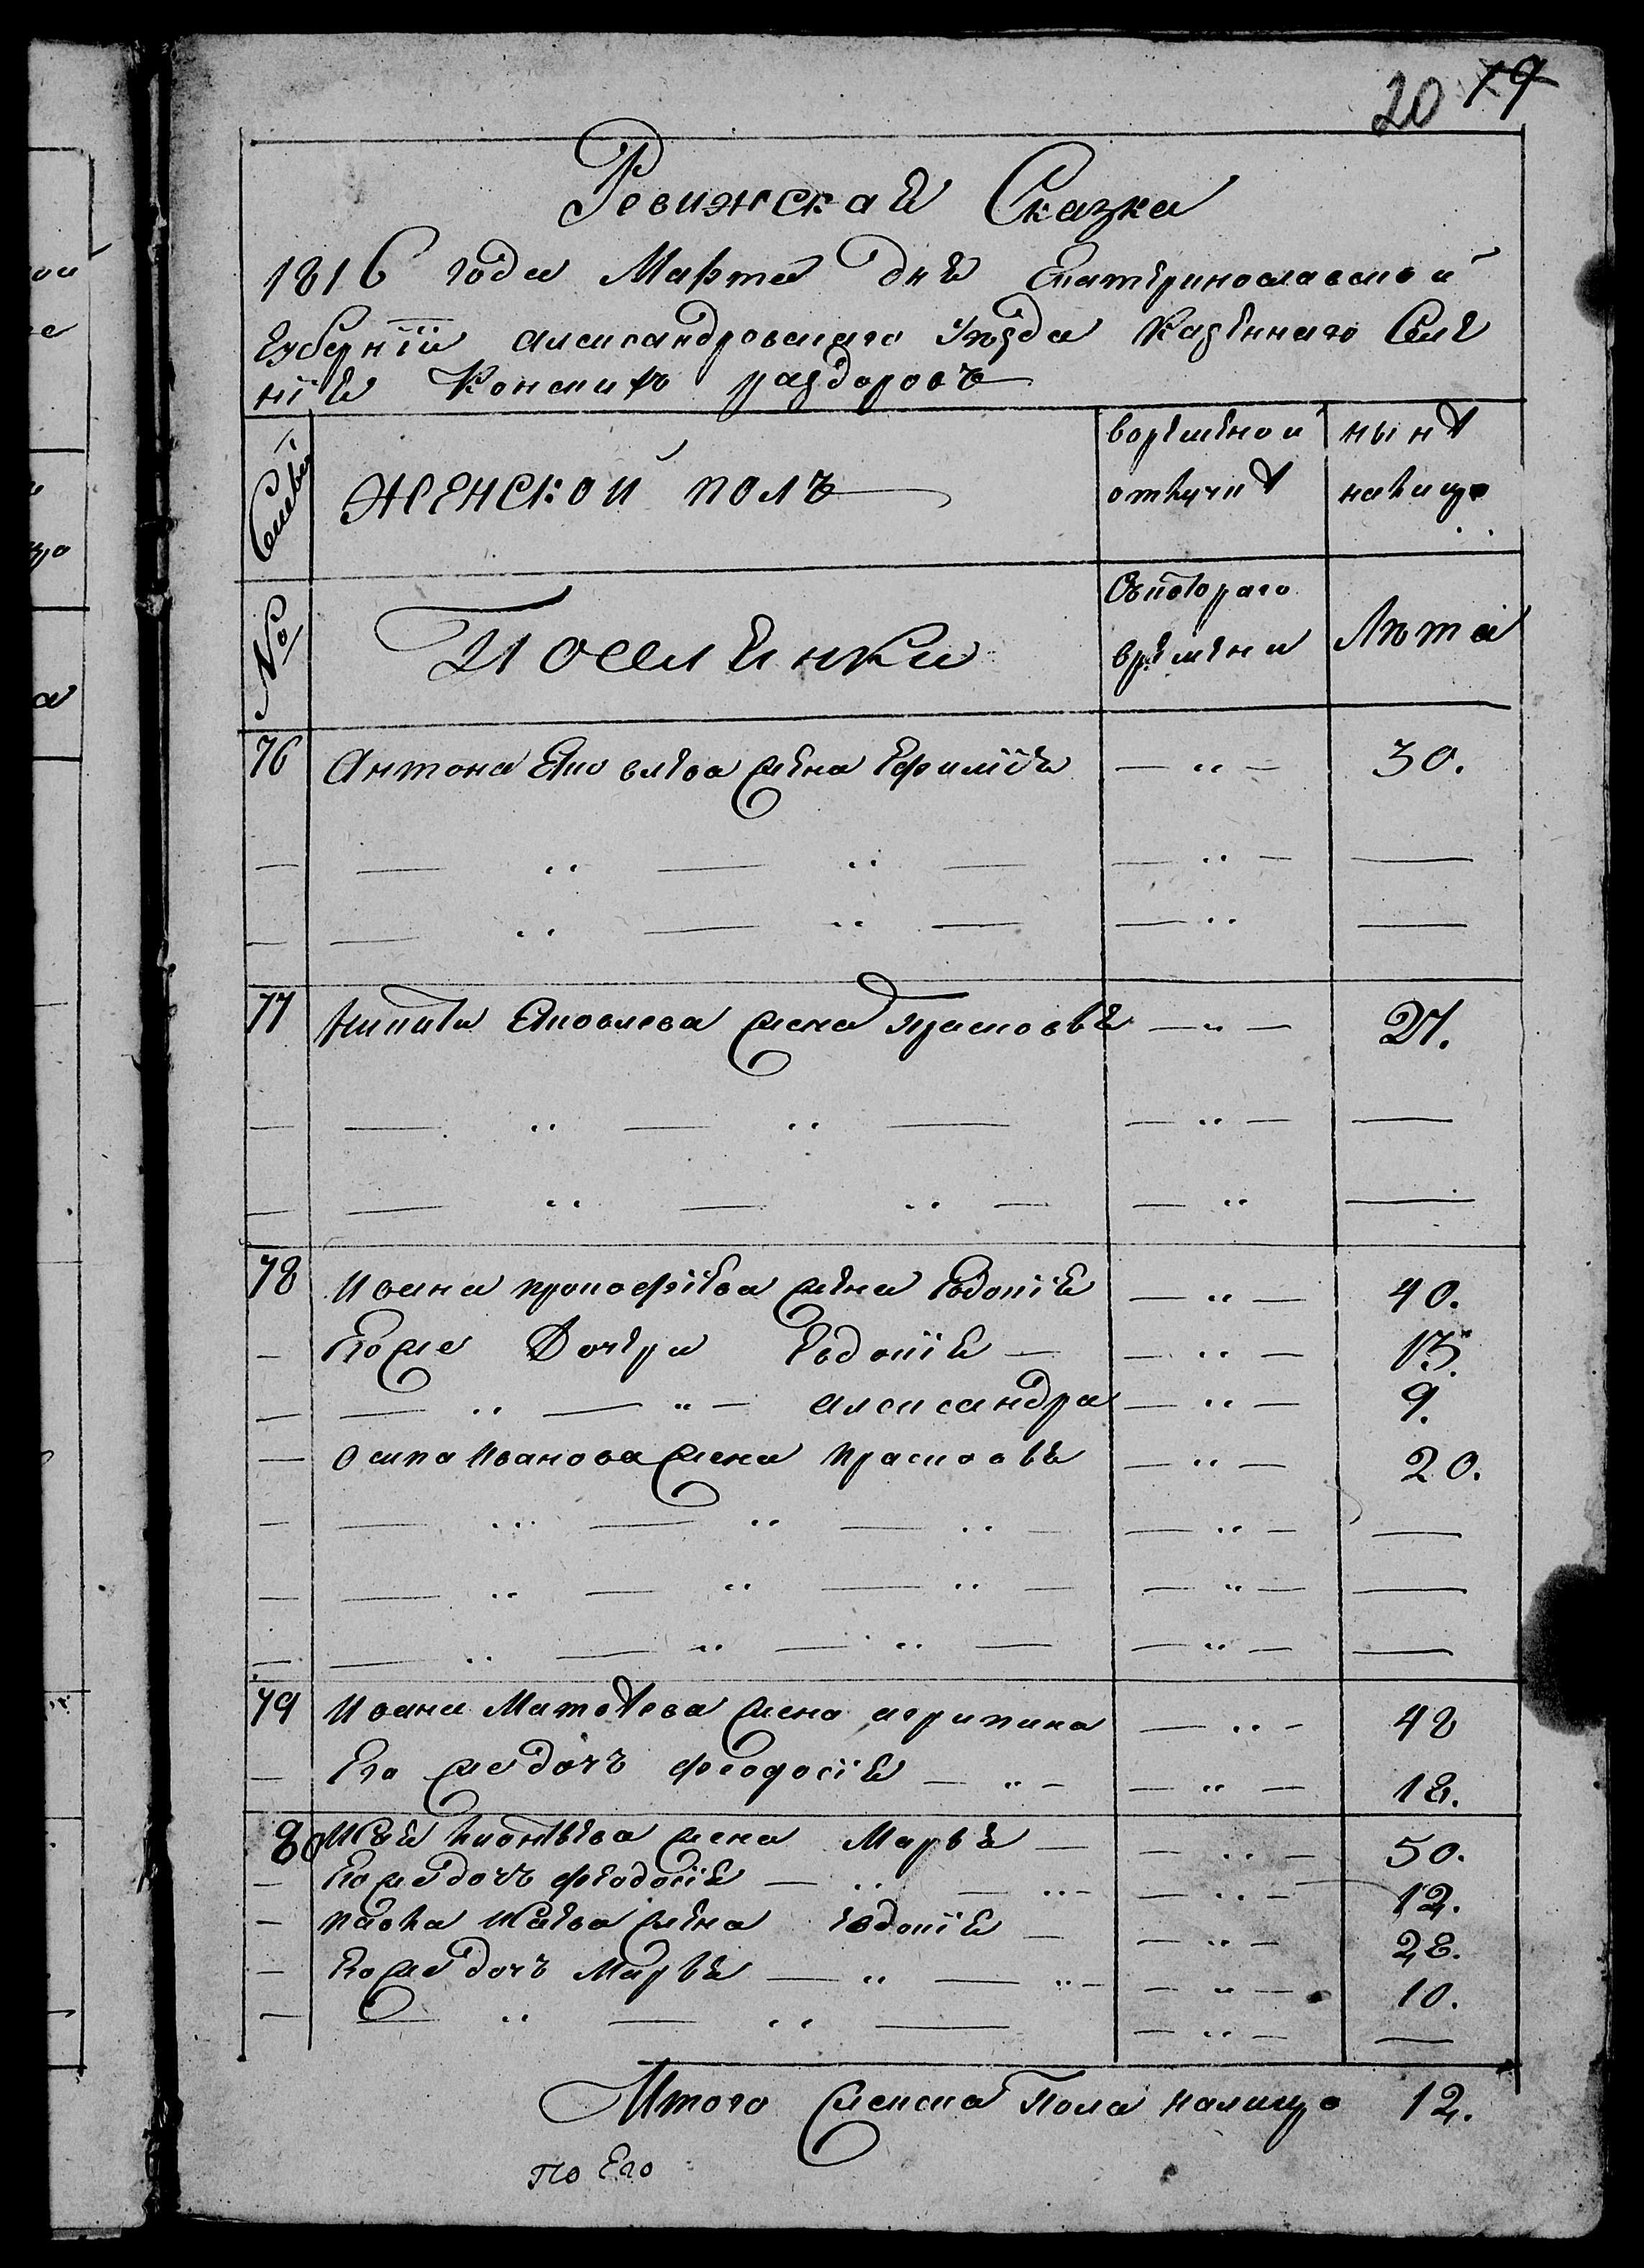 20 19
Ревижская Сказка
1816 года Марта дня Екатеринославской
Губерніи александровскаго уезда Казеннаго Селе
нія Конскихъ раздоровъ
Семьи
женской полъ
вовременной
отлучке
ныне
налицо
№
Поселянки
Скотораго
времени
Лѣта
76 Антона Яковлева жена Ефимія — „ — 30.
77 Никиты Яковлева жена прасковья — „ — 27.
78 Ивана прокофіева жена Евдокія — „ — 40.
— Егоже Дочери Евдокія — — „ — 13.
— — „ — „ — александра — „ — 9.
— Осипа Иванова жена прасковья — „ — 20.
79 Ивана Матвеева жена агрипина — „ — 48
— Его же дочь феодосія — „ — — „ — 18.
80 Исая жена Марья — — „ — 50.
— Егоже дочь феодосія — „ — „ — — „ — 12.
— павла Исаева жена Евдокія — — „ — 28.
— Егоже дочь Марья — „ — „ — — „ — 10.
Итого женска пола налицо 12.
По Его